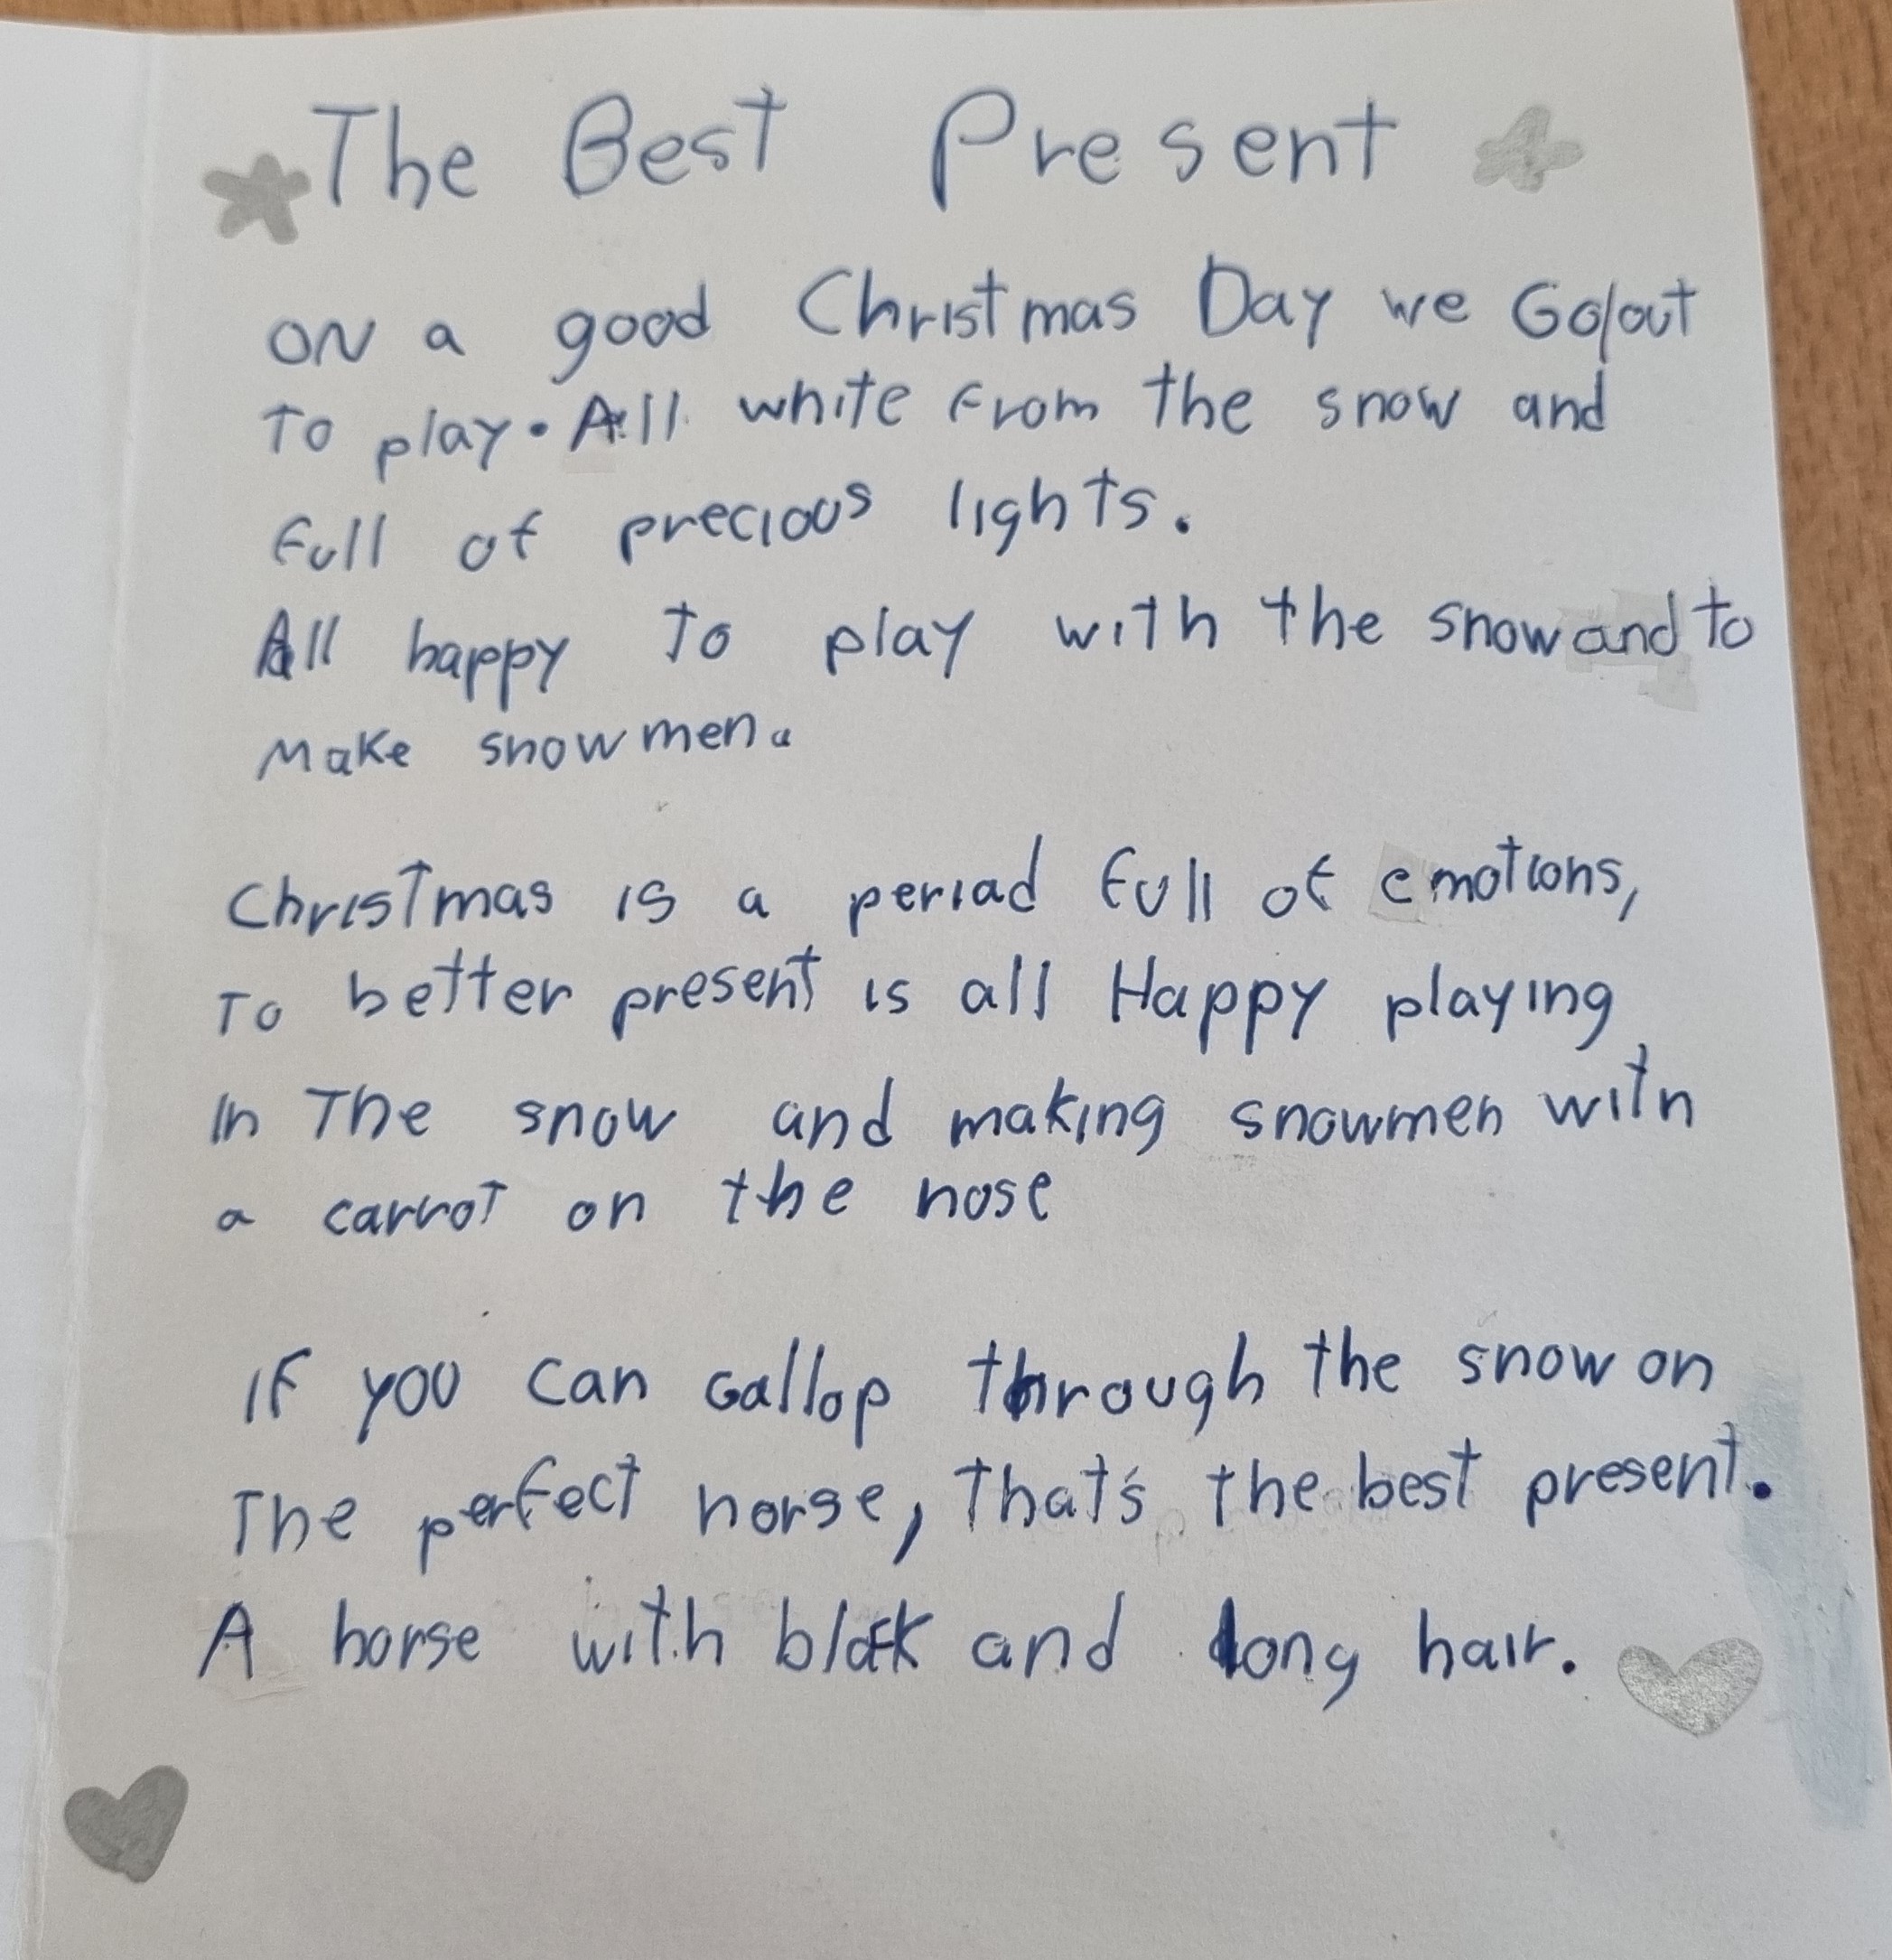 The Best Present
ON a good Christmas Day we Go/out
To play. All white from the snow and
full of precious lights.
All happy To play with the snow and to
Make snowmen.
Christmas is a periad full of emotions,
To better present is all Happy playing
In The snow and making snowmen with
a carrot on the nose
IF you can Gallop through the snow on
The perfect horse, that's the best present.
A horse with black and long hair.